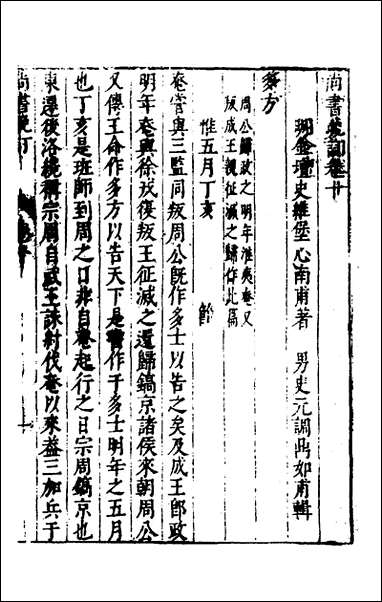 尚書晚訂卷十
明金壇史維堡心南甫著　男史元調鼎如甫輯
多方
周公歸政之明年淮夷奄又
叛成王親征滅之歸作此篇
惟五月丁亥　節
奄嘗與三監同叛周公既作多士以告之矣及成王卽政
明年奄與徐戎復叛王征滅之還歸鎬京諸侯來朝周公
又傳王命作多方以告天下是書作于多士明年之五月
也丁亥是班師到周之日非自奄起行之日宗周鎬京也
東遷後洛纔稱宗周自武王誅紂伐奄以來葢三加兵于
尚書晚訂